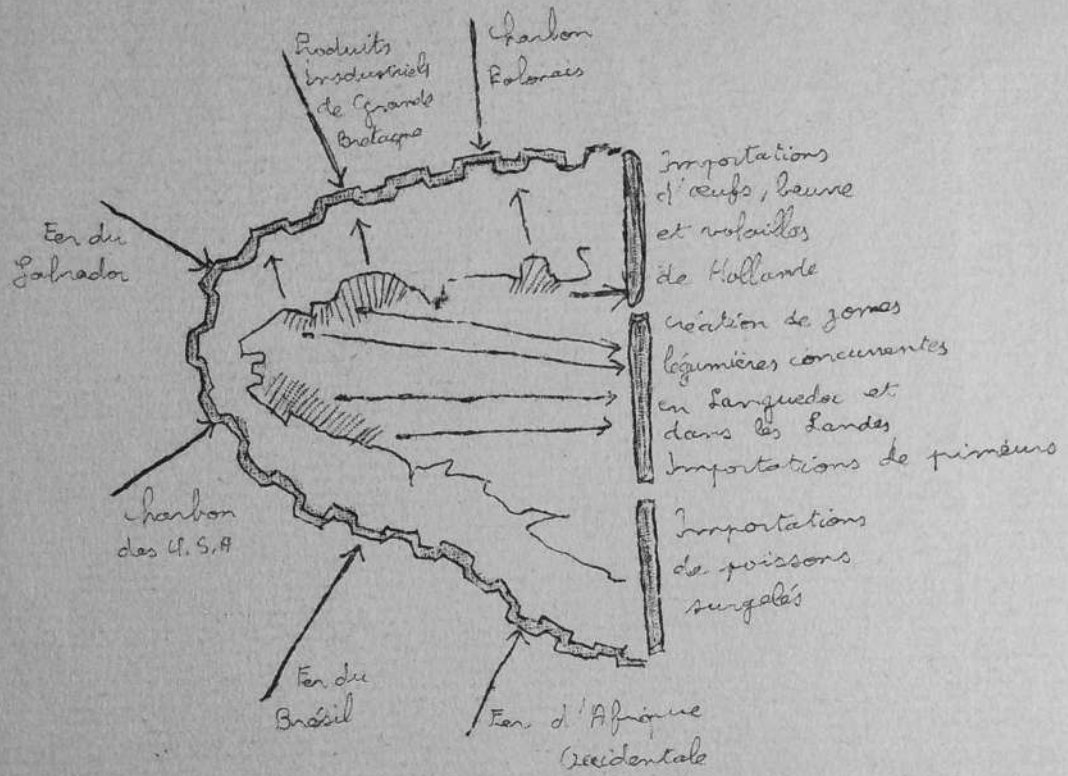 Produits
Insdustriels
de Grande
Bretagne
Charbon
Polonais
Fer du
Labrador
Charbon
des U.S.A
Fer du
Brésil
Fer d'Afrique
Occidentale
Importations
d'œufs, beurre
et volailles
de Hollande
Création de zones
légumières concurrentes
en Languedoc et
dans les Landes
Importations de primeurs
Importations
de poissons
surgelés